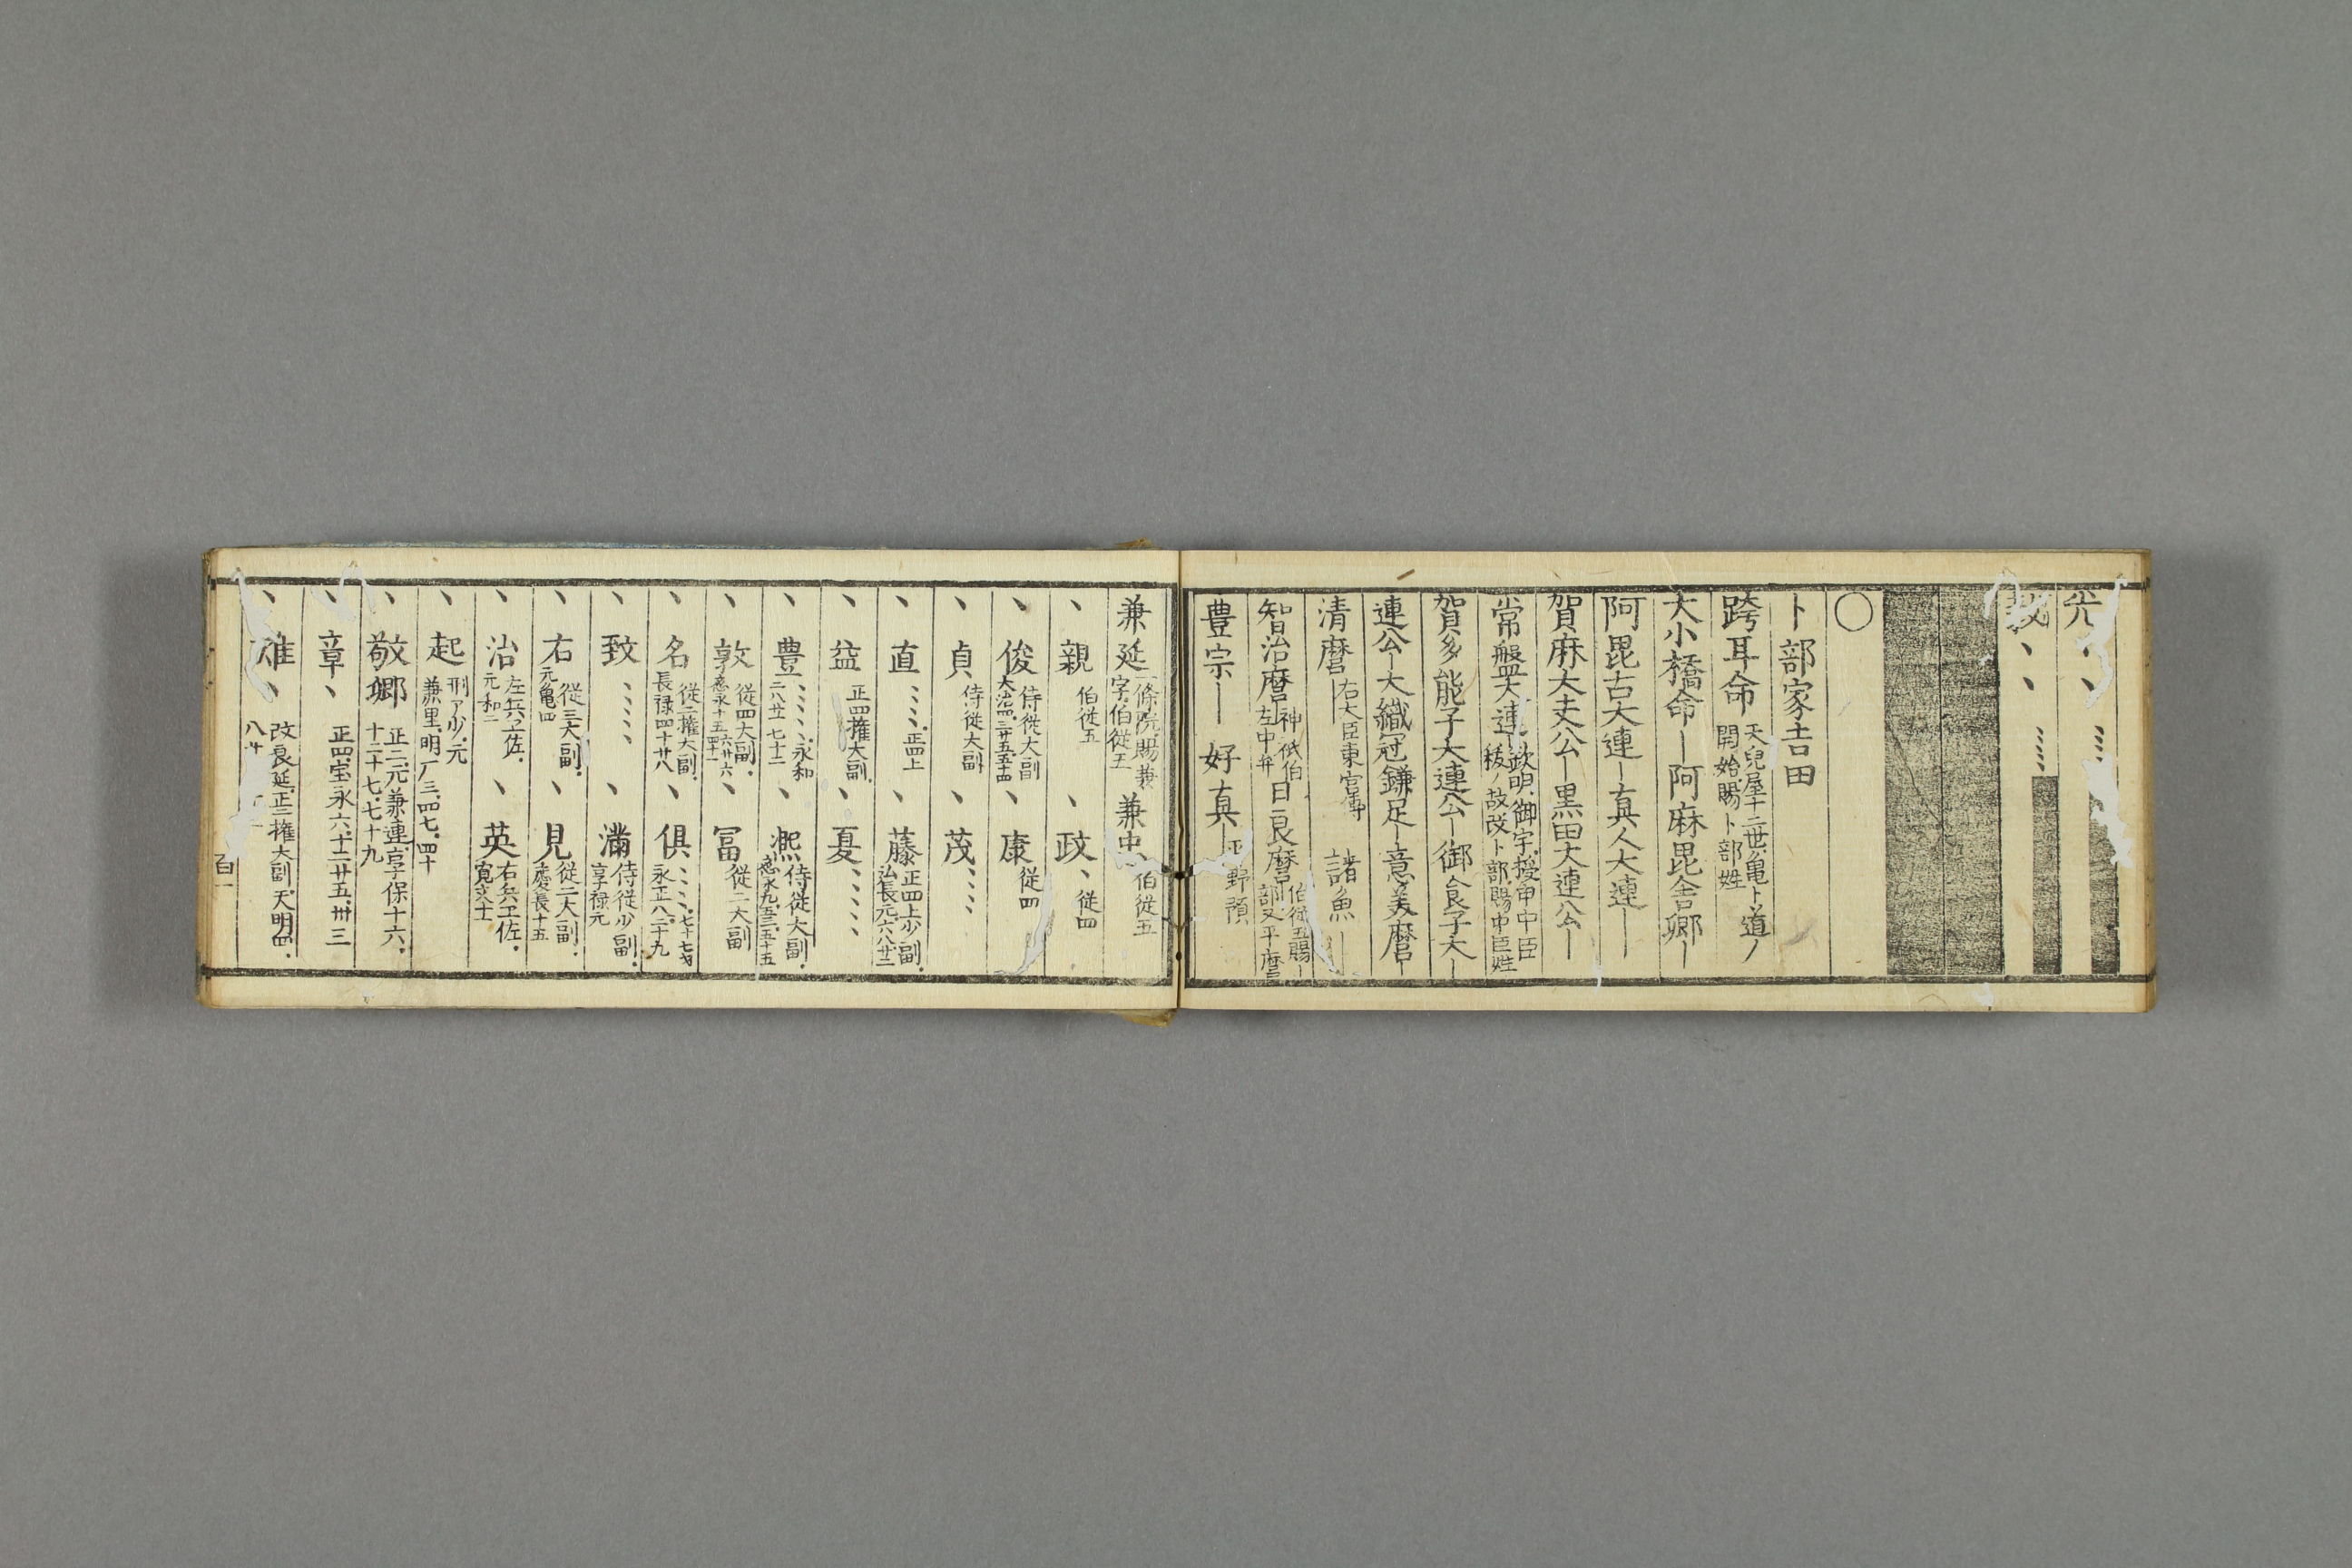 光、、、、、、
敦、、、、、、、
〇
卜部家吉田
跨耳命 天兒屋十二世亀卜道ノ開始賜卜部姓
大小橋命—阿麻毘舎卿—
阿毘古大連—真人大連—
賀麻大丈公—黒田大連公—
常盤大連 欽明御宇授申中臣祓ノ故改卜部賜中臣姓
賀多能子大連公—御食子大—
連公—大織冠鎌足—意美麿—
清麿 右大臣東宮傅 諸魚—
智治麿 神祇伯左中弁 日良麿 伯従五賜—訓又平麿
豊宗— 好真— 平野預
兼延 一條院賜兼字伯従五 兼忠 伯従五
、親 伯従五 、政、従四
、俊 侍従大副大治四三廿五五十四 、康 従四
、貞 侍従大副 、茂、、、、
、直、、、、正四上 、藤 正四上少副弘長元六八廿二
、益 正四権大副 、夏、、、、
、豊、、、、、永和二八廿七十二 、凞 侍従大副応永九五三五十五
、敦 従四大副応永十五六廿六四十一 、冨 従二大副
、名 従二権大副長禄四十廿八 、倶、、、、七十七才永正八二十九
、致、、、、、 、満 侍従少副享禄元
、右 従三大副元亀四 、見 従二大副慶長十五
、治 左兵衛佐元和二 、英 右兵衛佐寛文十一
、起 刑ア少元兼里明厂三四七四十
、敬卿 正二元兼連享保十六十二十七七十九
、章、 正四宝永六十二廿五卅三
、雄、 改良延正二権大副天明四八廿
百一